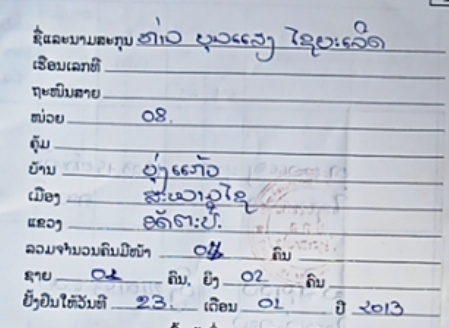 ຊື່ແລະນາມສະກຸນ ທ້າວ ບຸນແສງ ໄຊຍະເລີດ
ເຮືອນເລກທີ
ຖະໜົນສາຍ
ໜ່ວຍ 08.
ຄຸ້ມ
ບ້ານ ບຸ່ງແກ້ວ
ເມືອງ ສະໜາມໄຊ
ແຂວງ ອັດຕະປື.
ລວມຈຳນວນຄົນມີໜ້າ 04 ຄົນ
ຊາຍ 02 ຄົນ, ຍິງ 02 ຄົນ
ຢັ້ງຢືນໃຫ້ວັນທີ 23. ເດືອນ 01 ປີ 2013